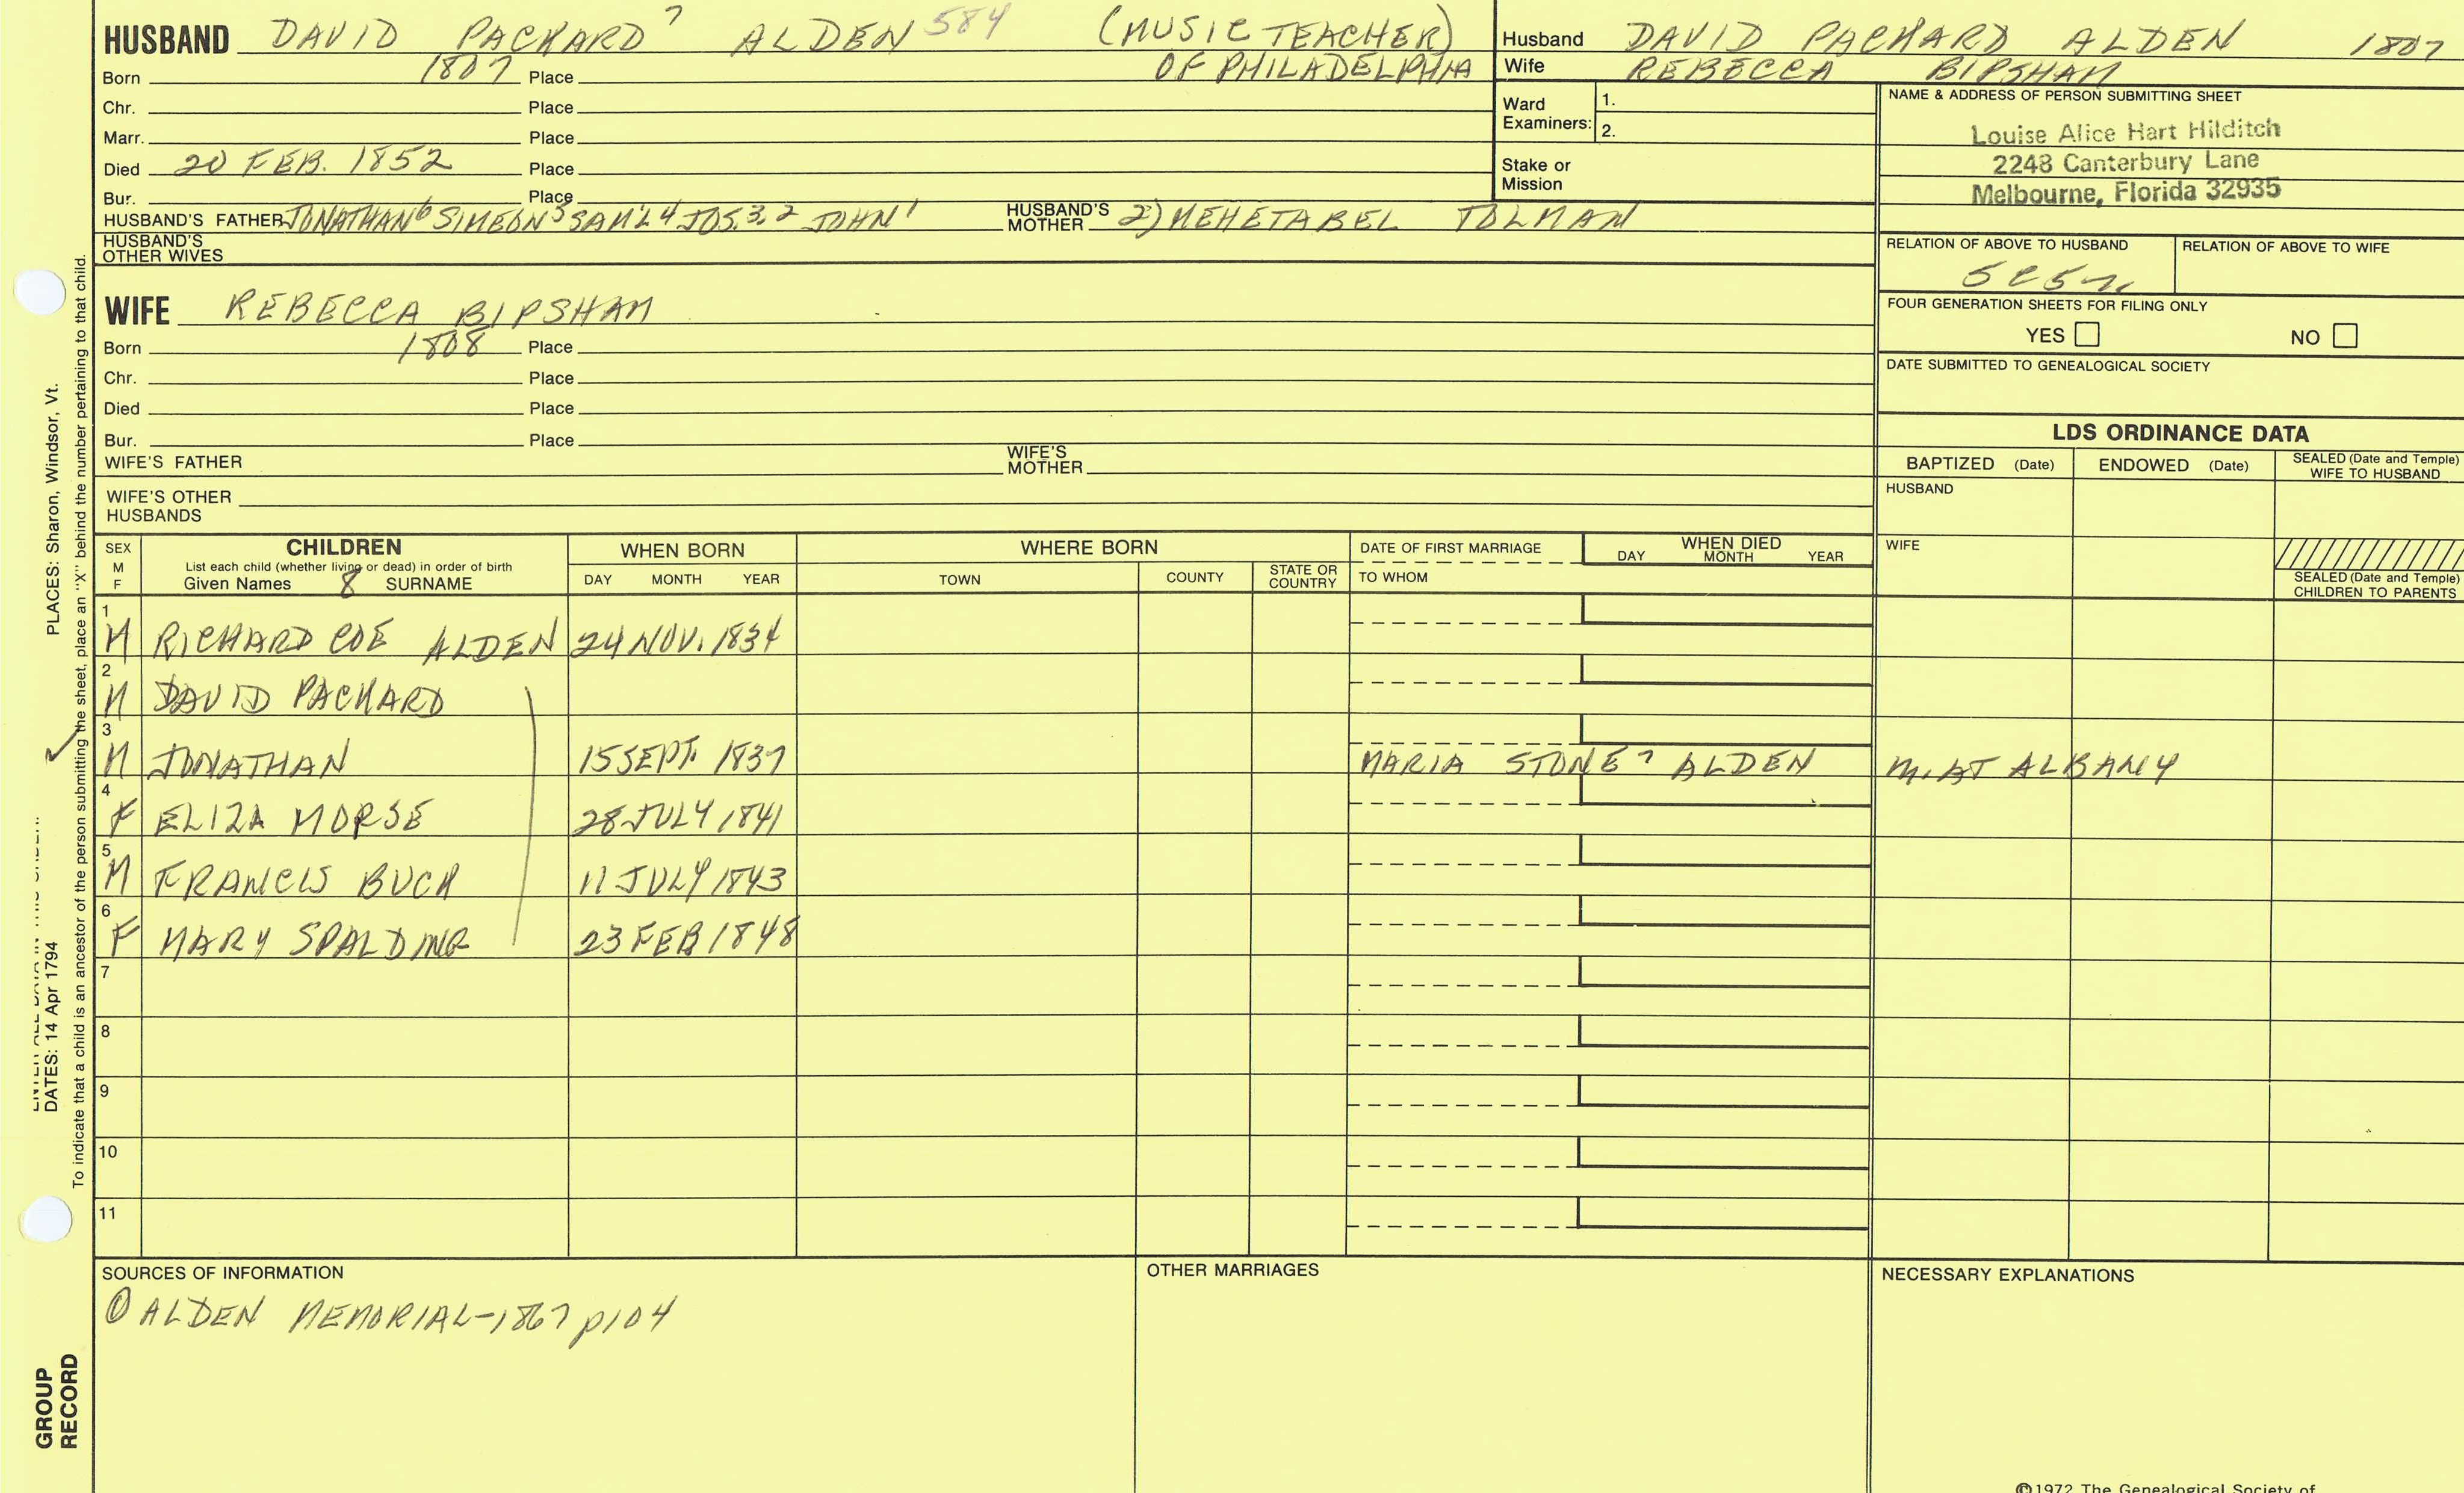 HUSBAND DAVID PACKARD 7 ALDEN 584 (MUSIC TEACHER)
Born 1807 Place OF PHILADELPHIA
Chr. Place
Marr. Place
Died 20 FEB. 1852 Place
Bur. Place
HUSBAND'S FATHER JONATHAN 6 SIMEON 5 SAM'L 4 JOS. 3, 2 JOHN 1 HUSBAND'S MOTHER 2) MEHETABEL TOLMAN
HUSBAND'S OTHER WIVES
WIFE REBECCA BIPSHAM
Born 1808 Place
Chr. Place
Died Place
Bur. Place
WIFE'S FATHER WIFE'S MOTHER
WIFE'S OTHER HUSBANDS
Husband DAVID PACKARD ALDEN 1807
Wife REBECCA BIPSHAM
Ward Examiners: 1.
2.
Stake or Mission
NAME & ADDRESS OF PERSON SUBMITTING SHEET
Louise Alice Hart Hilditch
2248 Canterbury Lane
Melbourne, Florida 32935
RELATION OF ABOVE TO HUSBAND RELATION OF ABOVE TO WIFE
FOUR GENERATION SHEETS FOR FILING ONLY
YES NO
DATE SUBMITTED TO GENEALOGICAL SOCIETY
LDS ORDINANCE DATA
BAPTIZED (Date) ENDOWED (Date) SEALED (Date and Temple) WIFE TO HUSBAND
HUSBAND
WIFE
SEALED (Date and Temple) CHILDREN TO PARENTS
SEX M F CHILDREN WHEN BORN WHERE BORN DATE OF FIRST MARRIAGE WHEN DIED
List each child (whether living or dead) in order of birth
Given Names 8 SURNAME DAY MONTH YEAR TOWN COUNTY STATE OR COUNTRY TO WHOM DAY MONTH YEAR
1 M RICHARD COE ALDEN 24 NOV. 1834
2 M DAVID PACKARD
3 M JONATHAN 15 SEPT. 1837 MARIA STONE 7 ALDEN M. AT ALBANY
4 F ELIZA MORSE 28 JULY 1841
5 M FRANCIS BUCK 11 JULY 1843
6 F MARY SPALDING 23 FEB 1848
7
8
9
10
11
SOURCES OF INFORMATION
① ALDEN MEMORIAL-1867 p104
OTHER MARRIAGES
NECESSARY EXPLANATIONS
©1972 The Genealogical Society of
PLACES: Sharon, Windsor, Vt.
DATES: 14 Apr 1794
To indicate that a child is an ancestor of the person submitting the sheet, place an "X" behind the number pertaining to that child.
GROUP
RECORD